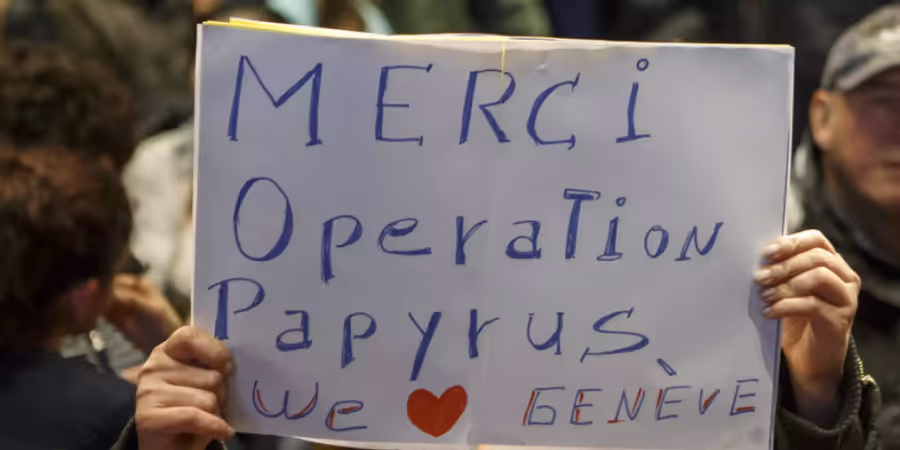 MERCi
OperaTioN
Papyrus
We ❤ GENÈVE